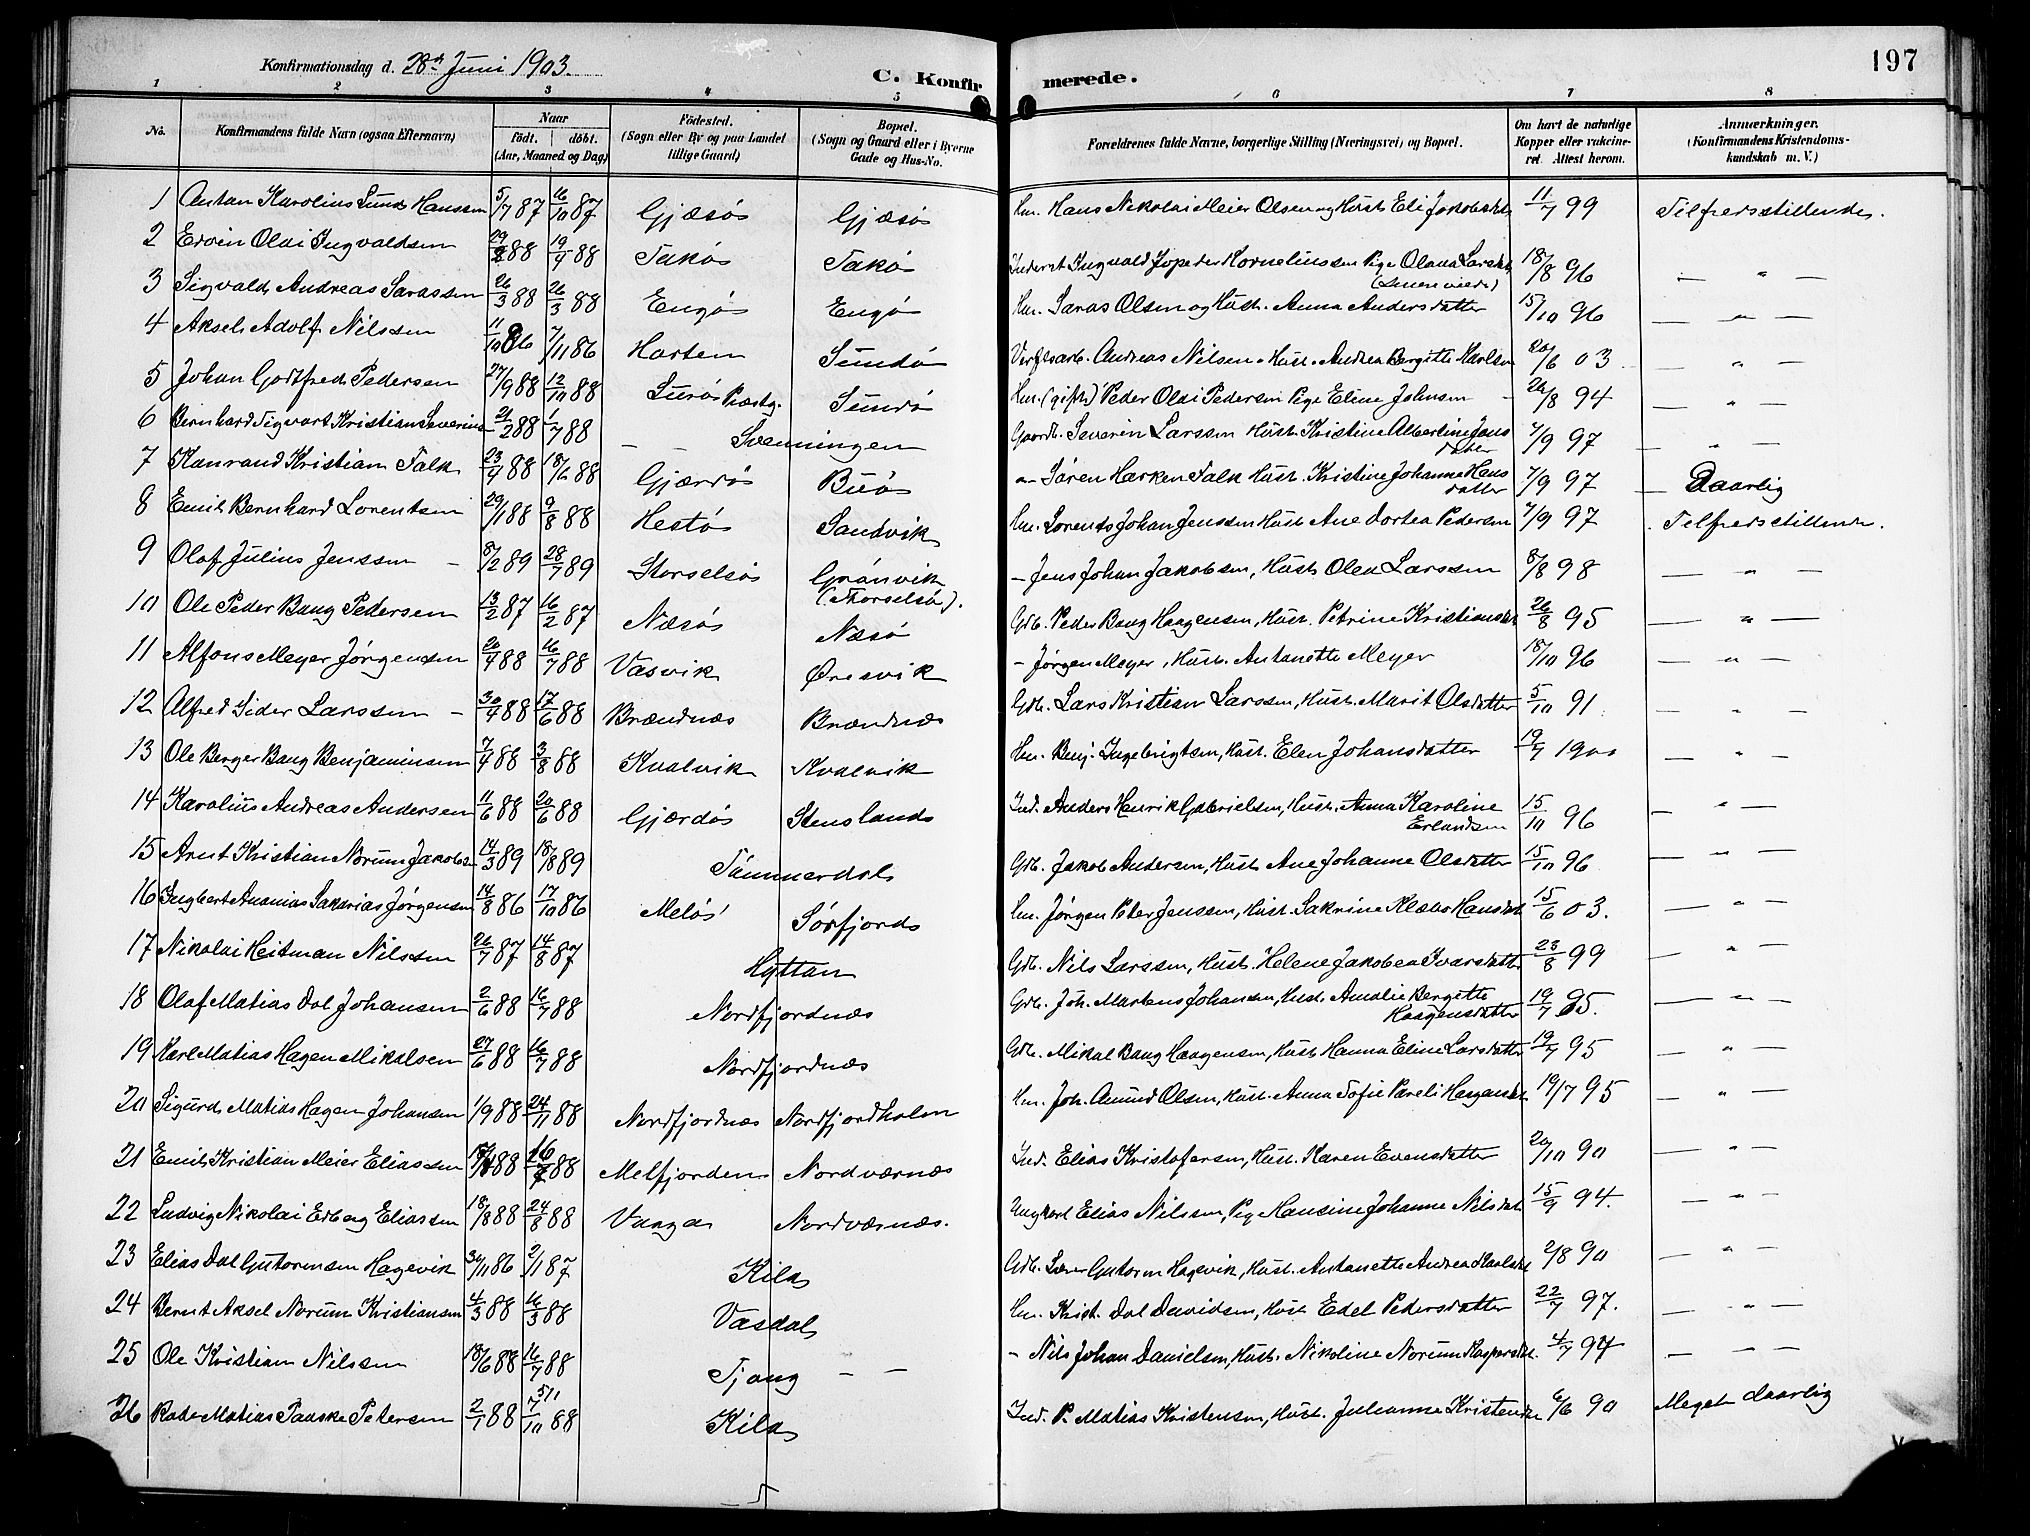 197
Konfirmationsdag d. 28de Juni 1903.
C. Konfirmerede.
1 2 3 4 5 6 7 8
No. Konfirmandens fulde Navn (ogsaa Efternavn) Naar født. døbt. (Aar, Maaned og Dag) Fødested. (Sogn eller By og paa Landet tillige Gaard) Bopæl. (Sogn og Gaard eller i Byerne Gade og Hus-No. Forældrenes fulde Navne, borgerlige Stilling (Næringsvei) og Bopæl. Om havt de naturlige Kopper eller vakcineret. Attest herom. Anmærkninger. (Konfirmandens Kristendomskundskab m. V.)
1 Anton Karolius Lund Hanssen 5/7 87 16/10 87 Gjæsø Gjæsø Hm. Hans Nikolai Meier Olsen og Hust. Eli Jakobsdtr 11/7 99 Tilfredsstillende.
2 Ervin Olai Ingvaldsen 88 19/4 88 Takø Takø Inderst Ingvald Kornelinssen Pige Olava Larsdtr 18/8 96 — " —
3 Sigvald Andreas Sarassen 26/3 88 26/3 88 Engø Engø Hm. Saras Olsen og Hust. Anna Andersdatter 15/10 96 — " —
4 Aksel Adolf Nilssen 11/10 86 7/11 86 Horten Sundø Verftsarb. Andreas Nilsen Hust. Andrea Bergitte Karlsen 20/6 03 " —
5 Johan Godtfred Pedersen 27/9 88 12/10 88 Lurø Præstg. Sundø Hm. (gift) Peder Olai Pedersen Pige Eline Johnsen 26/8 94 — " —
6 Bernhard Sigvart Kristian Severins 2/2 88 1/7 88 — — Svenningen Gaardb. Severin Larssen Hust. Kristine Albertine Jens datter 7/9 97 — " —
7 Konrand Kristian Falk 23/4 88 18/6 88 Gjærdø Buø — Søren Harken Falk Hust. Kristine Johanne Hans datter 7/9 97 — Daarlig
8 Emil Bernhard Lorentsen 29/1 88 9/8 88 Hestø Sandvik Hm. Lorents Johan Jenssen Hust. Ane Dortea Pedersen 7/9 97 Tilfredsstillende.
9 Olaf Julius Jenssen — 8/2 89 28/7 89 Storselsø Grønvik (Storselsø). — Jens Johan Jakobsen, Hust. Olea Larssen 8/8 98 — " —
10 Ole Peder Baug Pedersen 13/2 87 16/2 87 Næsø Næsø Gdb. Peder Baug Haagensen, Hust. Petrine Kristiansdtr 26/8 95 — " —
11 Alfons Meyer Jørgensen 20/4 88 16/7 88 Vasvik Øresvik — Jørgen Meyer, Hust. Antonette Meyer 18/10 96 — " —
12 Alfred Sider Larssen — 30/4 88 17/6 88 Brændnæs Brændnæs Gdb. Lars Kristian Larssen, Hust. Marit Olsdatter 5/10 91 — " —
13 Ole Berger Baug Benjaminsen 7/4 88 3/8 88 Kvalvik Kvalvik Hm. Benj. Ingebrigtsen, Hust. Elen Johansdatter 19/7 1900 — " —
14 Karolius Andreas Andersen 11/6 88 20/6 88 Gjærdø Stensland Ind. Anders Henrik Gabrielsen, Hust. Anna Karoline Erlandsen 15/10 96 — " —
15 Arnt Kristian Norum Jakobsen 14/3 89 18/8 89 Tømmerdal Gdb. Jakob Andersen, Hust. Ane Johanne Olsdatter 15/10 96 — " —
16 Ingbert Ananias Sakarias Jørgensen 14/8 86 17/10 86 Melø Sørfjord Hm. Jørgen Peter Jenssen, Hust. Sakrine Klæbo Hansdtr 15/6 03. — " —
17 Nikolai Heitman Nilssen 26/7 87 14/8 87 Hyttan Gdb. Nils Larssen, Hust. Helene Jakobea Ivarsdatter 23/8 99 — " —
18 Olaf Matias Dal Johansen 2/6 88 16/7 88 Nordfjordnæs Gdb. Joh. Martens Johansen, Hust. Amalie Bergitte Haagensdatter 19/7 95. — " —
19 Karl Matias Hagen Mikalsen 27/6 88 16/7 88 Nordfjordnæs Gdb. Mikal Baug Haagensen, Hust. Hanna Eline Larsdatter 19/7 95 — " —
20 Sigurd Matias Hagen Johansen 1/9 88 24/11 88 Nordfjordnæs Nordfjordholm Hm. Joh. Amund Olsen, Hust. Anna Sofie Pareli Haagensdtr 19/7 95 — " —
21 Emil Kristian Meier Eliassen 88 88 Melfjorden Nordværnæs Ind. Elias Kristofersen, Hust. Karen Evensdatter 20/10 90 — " —
22 Ludvig Nikolai Edberg Eliassen 18/8 88 24/8 88 Vaaga Nordværnæs. Ungkarl Elias Nilssen, Pige Hansine Johanne Nilsdtr 15/9 94. — " —
23 Elias Dal Gutormsen Hagevik 30/11 86 2/1 87 Kila Gdb. Gutorm Hagevik, Hust. Antonette Andrea Karlsdtr 2/8 90 — " —
24 Bernt Aksel Norum Kristiansen 4/3 88 16/3 88 Vasdal Hm. Krist. Dal Davidsen, Hust. Edel Pedersdatter 22/7 97. — " —
25 Ole Kristian Nilssen 18/6 88 16/7 88 Tjong — — — Nils Johan Danielsen, Hust. Nikoline Norum Kaspersdtr. 4/7 94 — " —
26 Matias Paaske Petersen 2/1 88 88 Kila Ind. P. Matias Kristensen, Hust. Julianne Kristensen 6/6 90 Meget daarlig